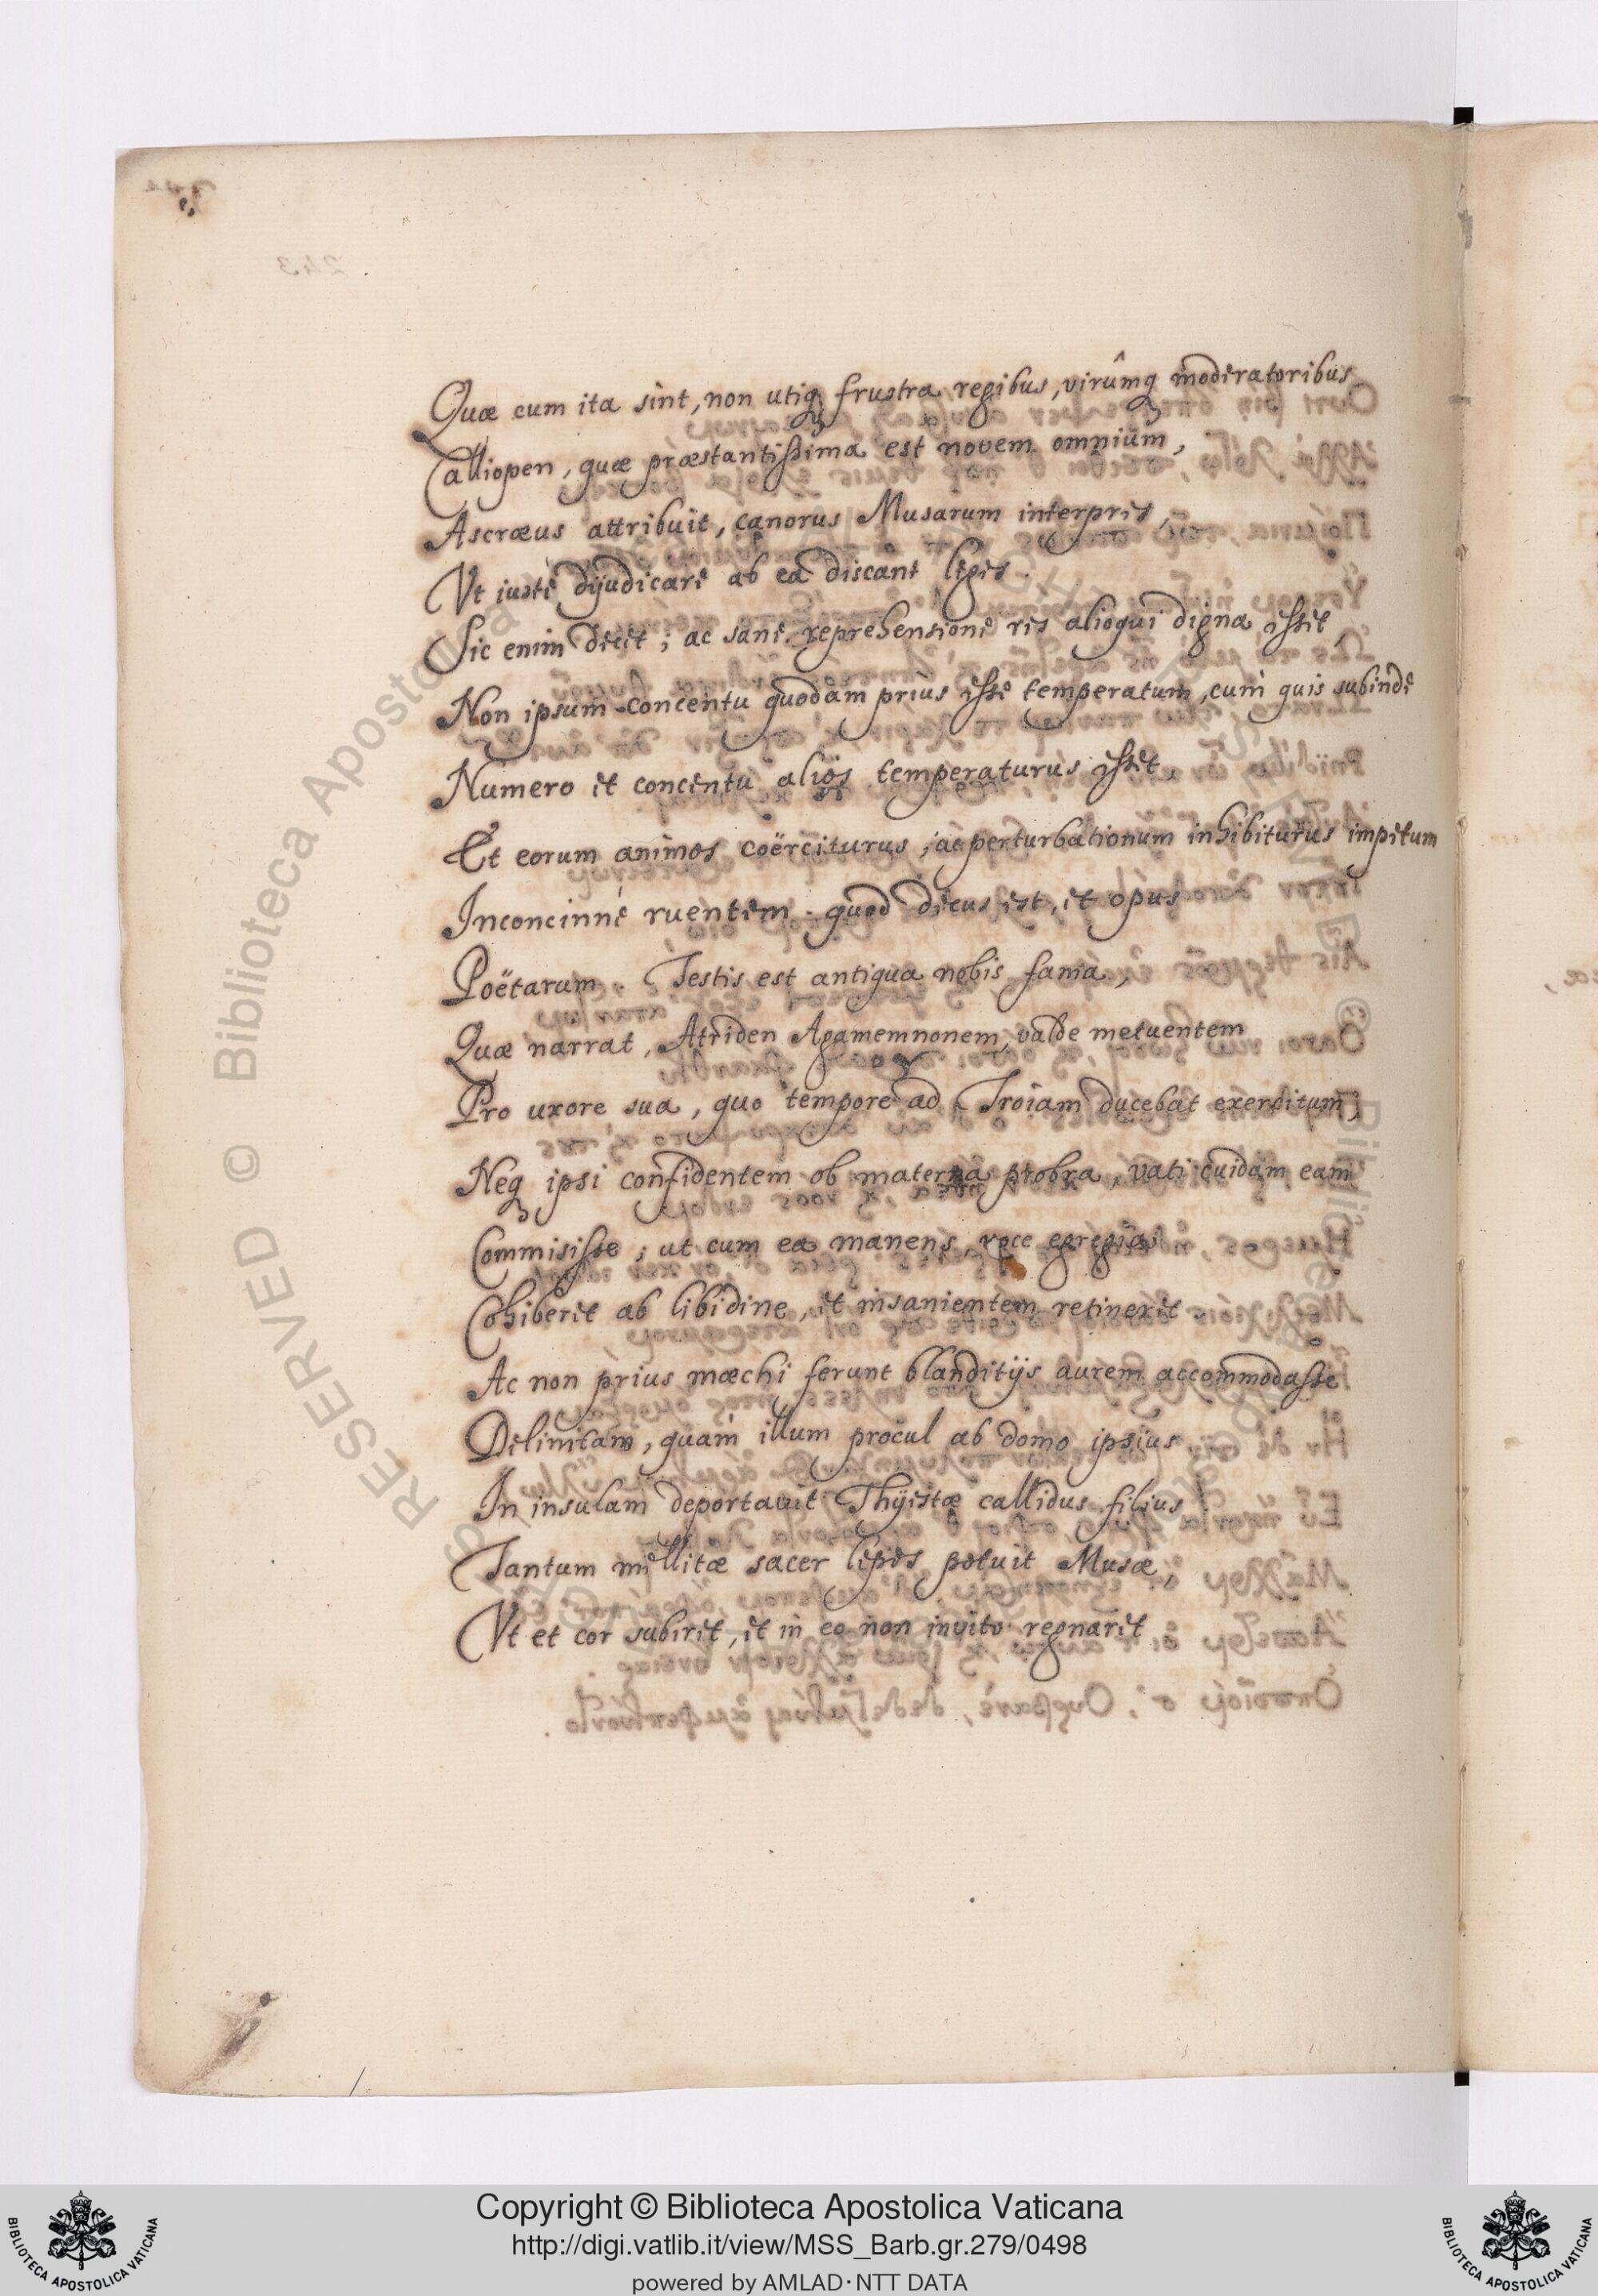 Quæ cum ita sint, non utiq; frustra regibus, virûmq; moderatoribus
Calliopen, quæ præstantißima est novem omnium,
Ascræus attribuit, canorus Musarum interpres,
Vt iuste dijudicare ab ea discant leges.
Sic enim decet; ac sane reprehensione res alioqui digna esset,
Non ipsum concentu quodam prius esse temperatum, cum quis subinde
Numero et concentu alios temperaturus esset,
Et eorum animos coërciturus, ac perturbationum inhibiturus impetum
Inconcinne ruentem. quod decus est, et opus
Poëtarum. Testis est antiqua nobis fama,
Quæ narrat, Atriden Agamemnonem, valde metuentem
Pro uxore sua, quo tempore ad Troiam ducebat exercitum,
Neq; ipsi confidentem ob materna probra, vati cuidam eam
Commisisse; ut cum ea manens, voce egregia
Cohiberet ab libidine, et insanientem retineret.
Ac non prius mœchi ferunt blanditijs aurem accommodasse
Delinitam, quàm illum procul ab domo ipsius
In insulam deportavit Thyestæ callidus filius.
Tantum mellitæ sacer lepos potuit Musæ,
Vt et cor subiret, et in eo non invito regnaret.
243
Copyright © Biblioteca Apostolica Vaticana
http://digi.vatlib.it/view/MSS_Barb.gr.279/0498
powered by AMLAD·NTT DATA
BIBLIOTECA APOSTOLICA VATICANA
BIBLIOTECA APOSTOLICA VATICANA